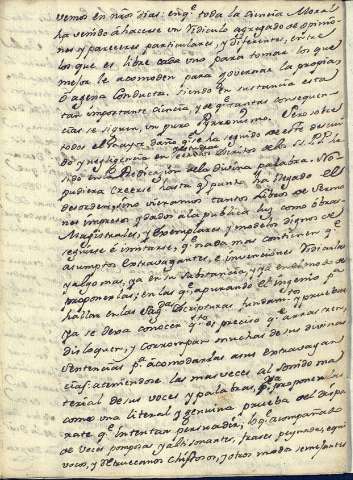 vemos en nros dias: en q.e toda la ciencia Moral
ha venido á hacerse un ridiculo agregado de opinio
nes y pareceres particulares, y diferentes, entre
los que es libre cada uno para tomar los que
mejor le acomoden para governar la propia,
ó agena conducta. siendo en sustancia esta
tan importante ciencia, y de q.e tantas consequen
cias se siguen, un puro Pyrronismo. Pero sobre
todos el mayor daño q.e se ha seguido de este descui
do y negligencia en
sido en la Predicacion de la divina palabra. No
pudiera creerse hasta q.e punto ha llegado el
desorden, si no vieramos tantos Libros de Sermo
nes impresos y dados a la publica luz como obras
Magistrales, y Exemplares y modelos dignos de
seguirse è imitarse, q.e nada mas contienen q.e
asumptos extravagantes, è invenciones ridiculas
y algo mas, ya en su substancia, y ya en el modo de
proponerlas; en las q.e apurando el ingenio p.a
hallar en las Sag.das Escripturas fundam.tos y pruebas
ya se deja conocer q.to es preciso q.e arrastren,
disloquen, y corrompan muchas de sus divinas
sentencias p.a acomodarlas a sus extravagan
cias: ateniendose las mas veces al sonido ma
terial de sus voces y palabras, p.a proponerlas
como una literal y genuina prueba del dispa
rate q.e intentan persuadir; lo q.e acompañado
de voces pomposas y altisonantes, frase peynada, equi
vocos, y retruecanos chistosos, y otros modos semejantes